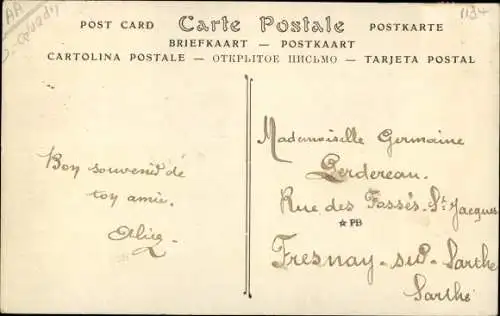 1134
POST CARD Carte Postale POSTKARTE
BRIEFKAART — POSTKAART
CARTOLINA POSTALE — ОТКРЫТОЕ ПИСЬМО — TARJETA POSTAL
Bon souvenir de
ton amie.
Mademoiselle Germaine
Perdereau.
Rue des Fossés-St-Jacques
★ PB
Fresnay-sur-Sarthe
Sarthe